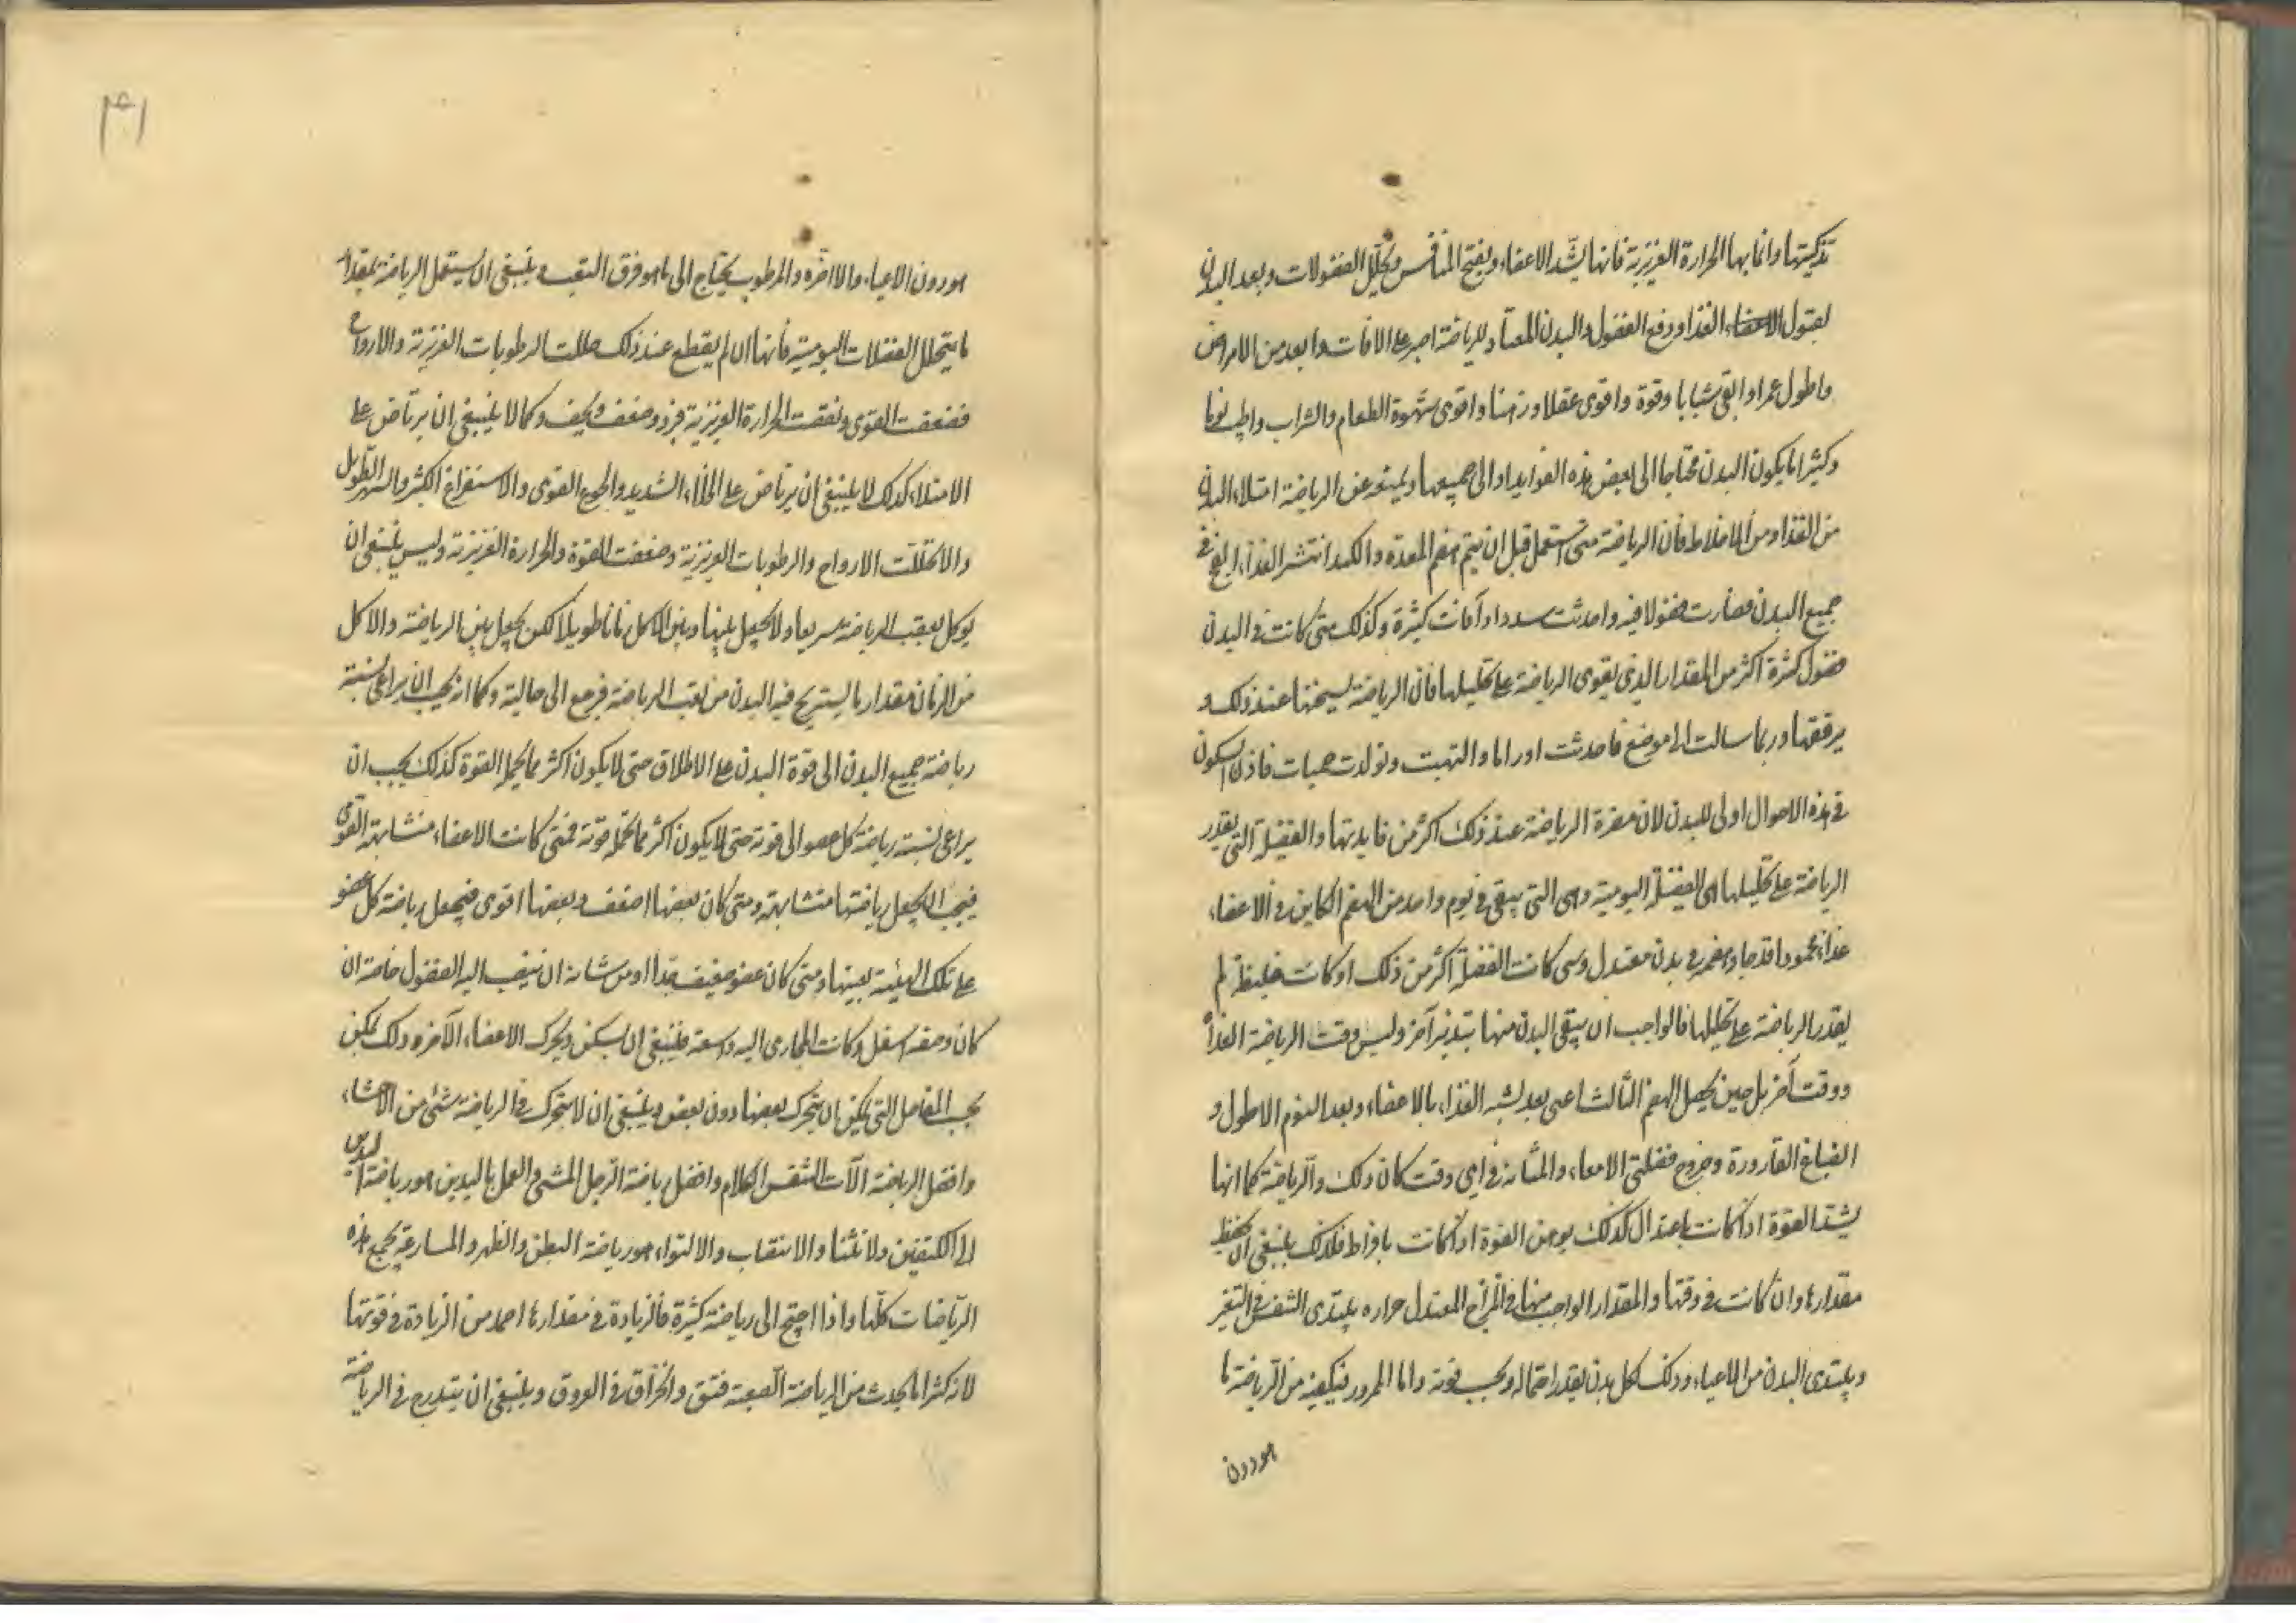 تذكيتها وانمائها الحرارة الغريزية فانها يشد الاعضاء ويفتح المنافس ويحلل الفضولات ويعد البدن
لقبول الغذاء ودفع الفضول والبدن المعتاد للرياضة اصبر على الافات وابعد من الامراض
واطول عمرا وابقى شبابا وقوة واقوى عقلا وذهنا واقوى شهوة الطعام والشراب
وكثيرا ما يكون البدن محتاجا الى بعض هذه الفوايد او الى جميعها ويمنعه عن الرياضة امتلاء البدن
من الغذاء ومن الاخلاط فان الرياضة متى استعمل قبل ان يتم هضم المعدة والكبد انتشر الغذاء الى في
جميع البدن فصارت فضولا فيه واحدثت سددا وآفات كثيرة وكذلك متى كانت في البدن
فضول كثيرة اكثر من المقدار الذي يقوى الرياضة على تحليلها فان الرياضة يسخنها عند ذلك و
يرققها وربما سالت الى موضع فاحدثت اوراما والتهبت وتولدت حميات فاذن السكون
في هذه الاحوال اولى للبدن لان مضرة الرياضة عند ذلك اكثر من فايدتها والفضلة التي يقدر
الرياضة على تحليلها هى الفضلة اليومية وهى التي يبقى في يوم واحد من الهضم الكاين في الاعضاء
غذاء محمودا قد جاد هضمه في بدن معتدل ومتى كانت الفضلة اكثر من ذلك او كانت غليظة لم
يقدر الرياضة على تحليلها فالواجب ان ينقى البدن منها بتدبير آخر وليس وقت الرياضة الغذاء
ووقت آخر بل حين يحصل الهضم الثالث اعنى بعد تشبه الغذاء بالاعضاء وبعد النوم الاطول و
انصباغ القارورة وخروج فضلتي الامعاء والمثانة في اى وقت كان ذلك والرياضة كما انها
يشد القوة اذا كانت باعتدال كذلك يوهن القوة اذا كانت بافراط فلذلك ينبغي ان يحفظ
مقدارها وان كانت في وقتها والمقدار الواجب منها في المزاج المعتدل حراره يبتدى النفس في التغير
ويبتدى البدن من الاعياء وذلك لكل بدن بقدر احتماله وبحسب قوته واما المحرور فيكفيه من الرياضة ما
هو دون
هو دون الاعياء والمرطوب يحتاج الى ما هو فوق التعب وينبغي ان يستعمل الرياضة بمقدار
ما يتحلل الفضلات اليومية فانها ان لم يقطع عند ذلك حللت الرطوبات الغريزية والارواح
فضعفت القوى ونقصت الحرارة الغريزية وضعف ونحف وكما لا ينبغي ان يرتاض على
الامتلاء كذلك لا ينبغي ان يرتاض على الخلاء الشديد والجوع القوى والاستفراغ الكثير والسهر الطويل
والا تحللت الارواح والرطوبات الغريزية وضعفت القوة والحرارة الغريزية وليس ينبغي ان
يوكل بعقب الرياضة سريعا ولا يجعل بينها وبين الاكل زمانا طويلا لكن يجعل بين الرياضة والاكل
من الزمان مقدار ما يستريح فيه البدن من تعب الرياضة فرجع الى حاليه وكما انه يجب ان يراعى نسبة
رياضة جميع البدن الى قوة البدن على الاطلاق حتى لا يكون اكثر مما يحمل القوة كذلك يجب ان
يراعى نسبة رياضة كل عضو الى قوته حتى لا يكون اكثر مما تحمله قوته فمتى كانت الاعضاء متشابهة القوى
فيجب ان يجعل رياضتها متشابهة ومتى كان بعضها اضعف وبعضها اقوى فيجعل رياضة كل عضو
على تلك الهيئة بعينها ومتى كان عضو ضعيف جدا او من شانه ان ينصب اليه الفضول خاصة ان
كان وضعه اسفل وكانت المجارى اليه واسعة فينبغي ان يسكن ويحرك الاعضاء الآخره وذلك يمكن
بحسب المفاصل التي يمكن ان يتحرك بعضها دون بعض وينبغي ان لا يتحرك في الرياضة شئ من الاحشاء
وافضل الرياضة الآت التنفس الكلام وافضل رياضة الرجل المشى والعمل باليدين هو رياضة اليدين
الى الكتفين والانثناء والانتصاب والالتواء هو رياضة البطن والظهر والمسارعة يجمع هذه
الرياضات كلها واذا احتيج الى رياضة كثيرة فالزيادة في مقدارها احمد من الزيادة في قوتها
لانه كثيرا ما يحدث من الرياضة الصعبة فتق وانخراق في العروق وينبغي ان يتدرج في الرياضة